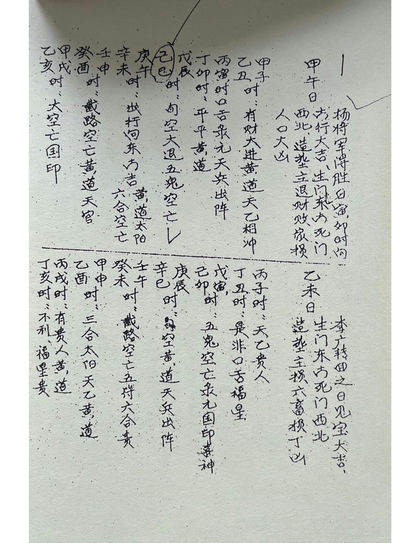 杨将军得胜日寅卯时向
甲午日
出行大吉、生门东方死门
西北、造葬主退财败家损
人口大凶
甲子时：有财大进黄道天乙相冲
乙丑时：
丙寅时：口舌杀元天兵出阵
丁卯时：平平黄道
戊辰
己巳时：旬空大退五鬼空亡
庚午
辛未时：出行向东方吉 黄道太阳
六合空亡
壬申时：
癸酉 截路空亡黄道天官
甲戌时：
乙亥时：大空亡国印
李广转回之日见宝大吉、
乙未日
生门东方死门西北
造葬主损六畜损丁凶
丙子时：天乙贵人
丁丑时：是非口舌福星
戊寅
己卯时：五鬼空亡杀元国印喜神
庚辰
辛巳时：旬空黄道天兵出阵
壬午
癸未时：截路空亡五符六合贵
甲申
乙酉时：三合太阳天乙黄道
丙戌时：有贵人黄道
丁亥时：不利、福星贵